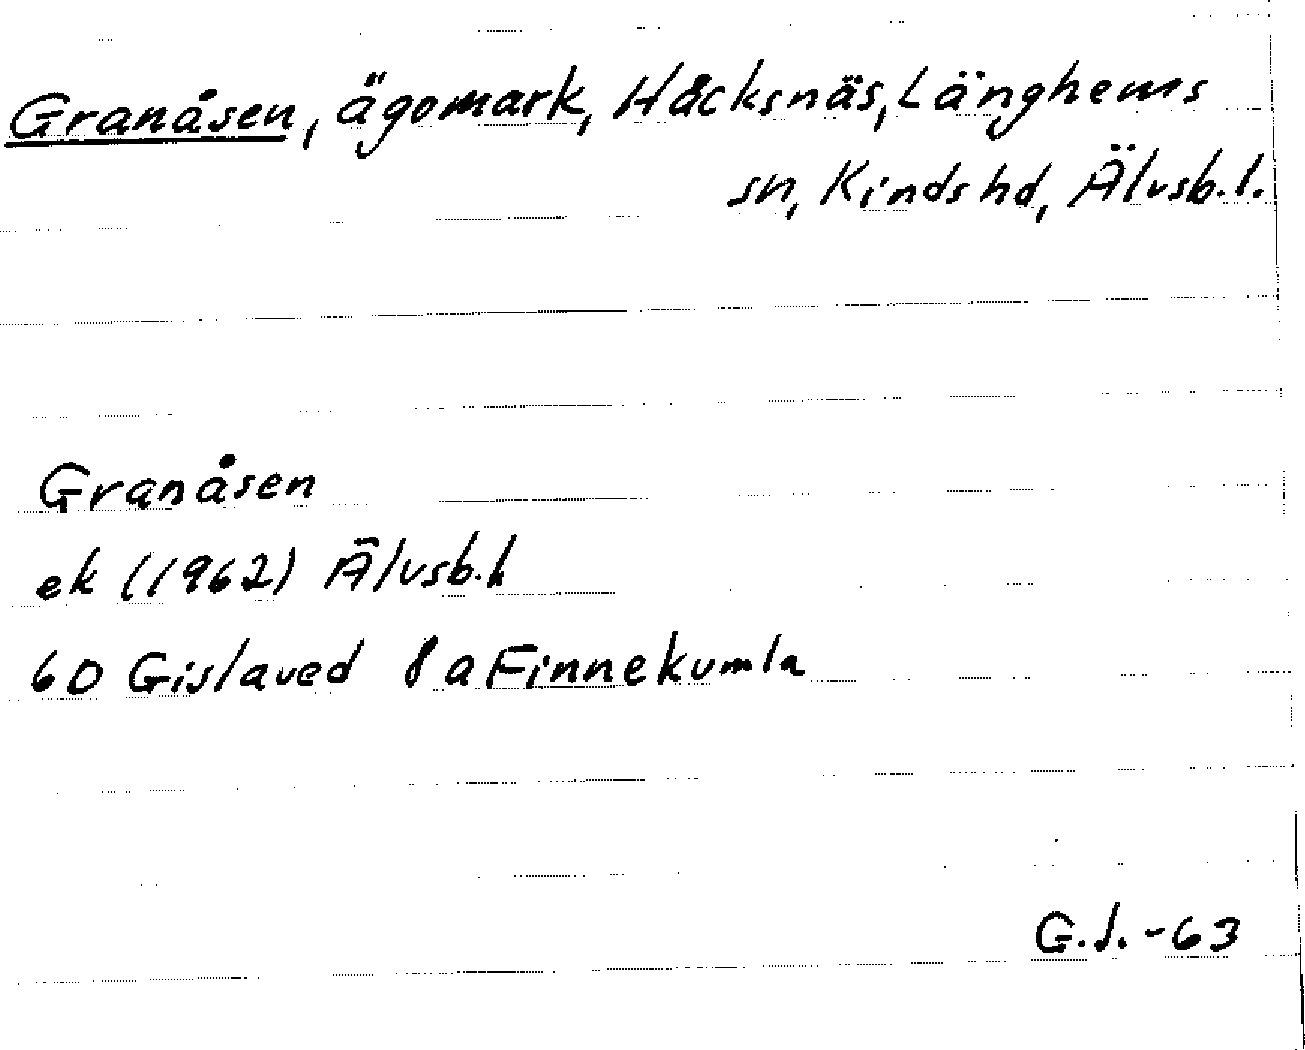 Granåsen, ägomark, Håcksnäs, Länghems
sn, Kinds hd, Älvsb. l.
Granåsen
ek (1962) Älvsb. l
6D Gislaved 8a Finnekumla
G.J. -63